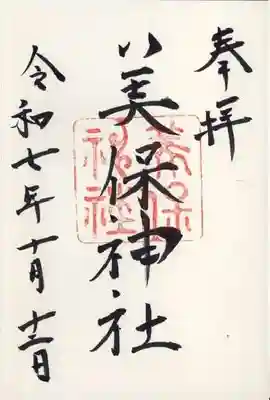 奉拝
美保神社
美保
神社
令和七年十月十三日